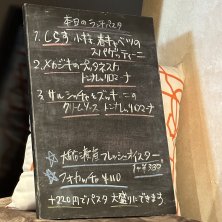 本日のランチパスタ
1. しらす 小松菜 春キャベツの
スパゲッティーニ
2. メカジキの
トンナレッリ ロマーナ
3. サルシッチャとズッキーニの
クリームソース トンナレッリロマーナ
☆ フレッシュオイスター
1ヶ ¥380
☆ フォカッチャ ¥110
+220円でパスタ 大盛りにできます。